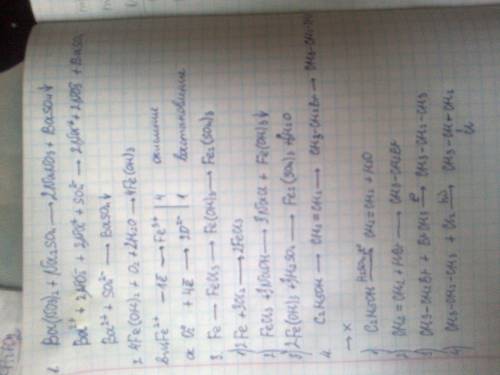 1. Ba(NO3)2 + Na2SO4 → 2NaNO3 + BaSO4↓
Ba2+ + 2NO3- + 2Na+ + SO42- → 2Na+ + 2NO3- + BaSO4
Ba2+ + SO42- → BaSO4↓
2. 4Fe(OH)2 + O2 + 2H2O → 4Fe(OH)3
Fe2+ - 1ē → Fe3+ | 4 окисление
O2 + 4ē → 2O2- | 1 восстановление
3. Fe → FeCl3 → Fe(OH)3 → Fe2(SO4)3
1) 2Fe + 3Cl2 → 2FeCl3
2) FeCl3 + 3NaOH → 3NaCl + Fe(OH)3↓
3) 2Fe(OH)3 + 3H2SO4 → Fe2(SO4)3 + 6H2O
4. C2H5OH → CH2=CH2 → CH3-CH2Br → CH3-CH2-CH3
→ X
1) C2H5OH → CH2=CH2 + H2O
2) CH2=CH2 + HBr → CH3-CH2Br
3) CH3-CH2Br + BrCH3 → CH3-CH2-CH3
4) CH3-CH2-CH3 + Cl2 hν→ CH3-CH-CH3
Cl